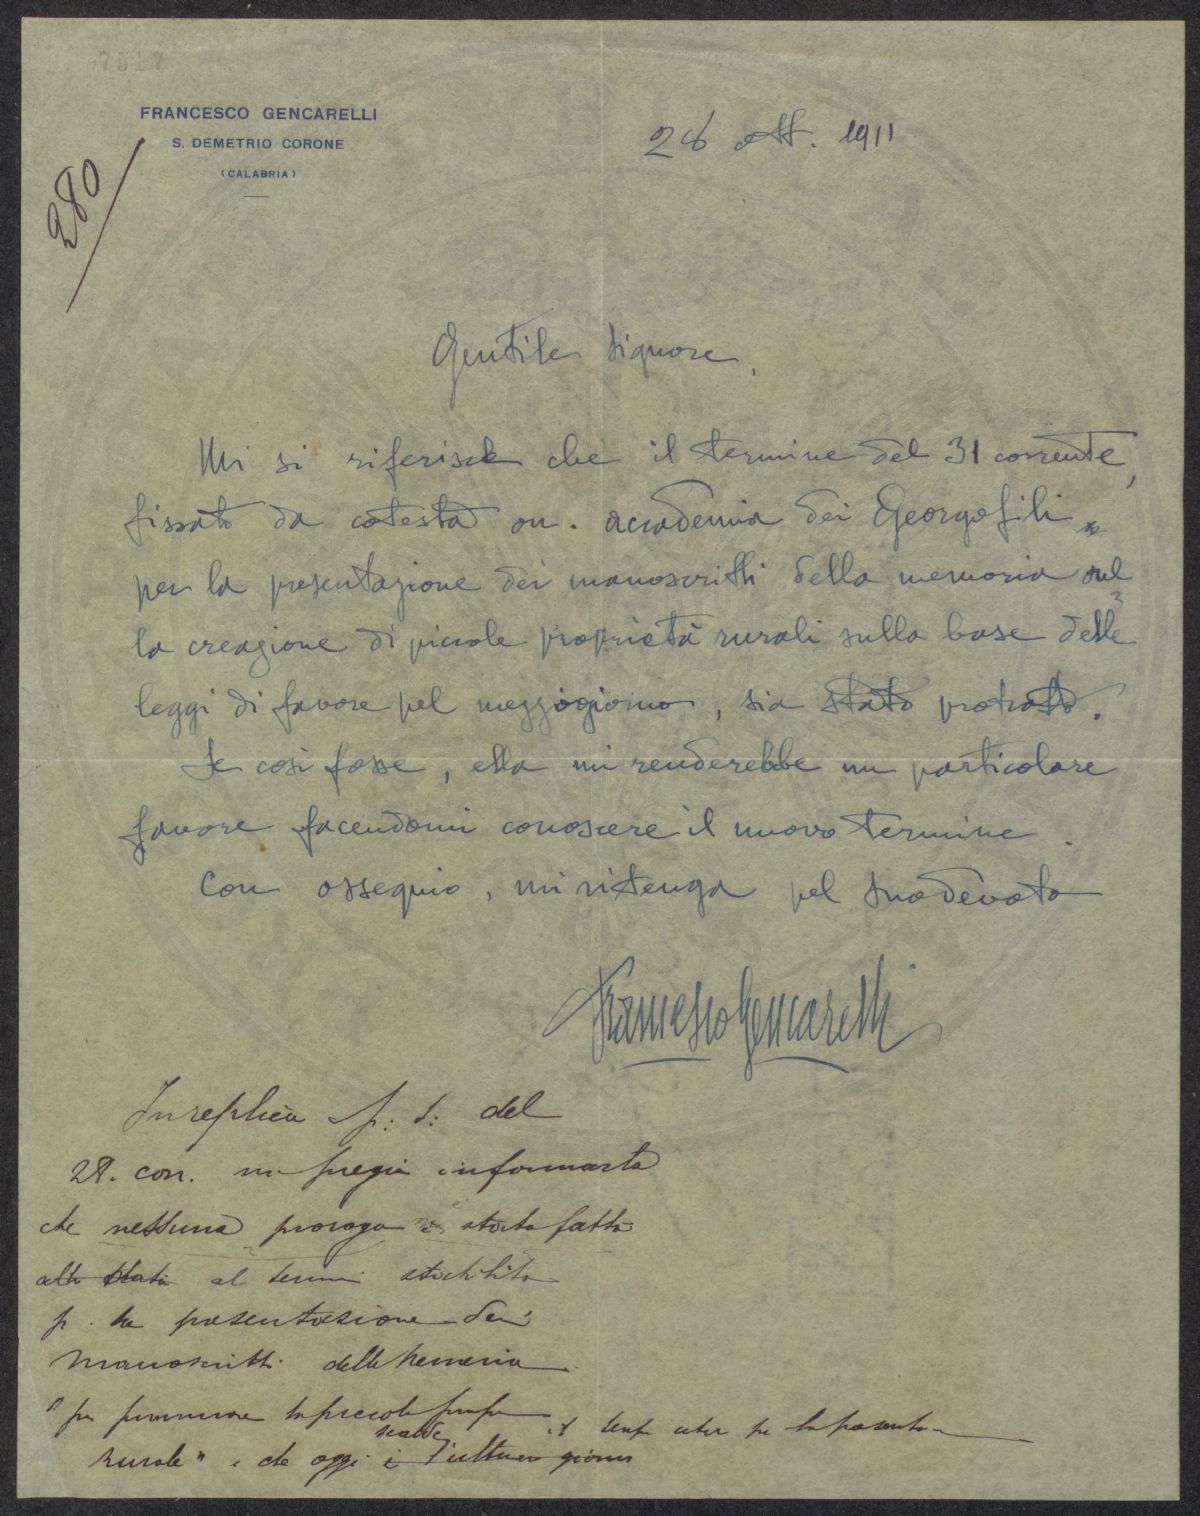 7517
FRANCESCO GENCARELLI
S. DEMETRIO CORONE
(CALABRIA)
280
28 ott. 1911
Gentile Signore,
Mi si riferisce che il termine del 31 corrente,
fissato da cotesta on. accademia dei Georgofili
per la presentazione dei manoscritti della memoria sul
la creazione di piccole proprietà rurali sulla base delle
leggi di favore pel mezzogiorno, sia stato protratto.
Se così fosse, ella mi renderebbe un particolare
favore facendomi conoscere il nuovo termine.
Con ossequio, mi ritenga pel suo devoto
Francesco Gencarelli
In replica p: s: del
28. corr. mi pregio informarla
che nessuna proroga è stata fatta
alla data al termine stabilito
p. la presentazione dei
manoscritti della memoria
"per promuovere la piccola prop
scade il temp utile per la presenta
rurale" e che oggi è l'ultimo giorno